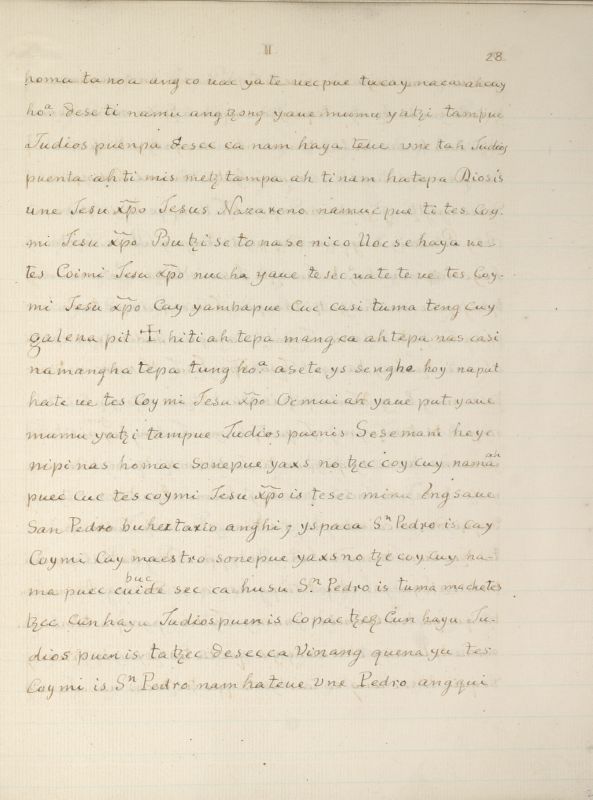 II
28.
homa ta noa ang co uac ya te uec pue tucay naca ah cuy
ho.ª dese ti namu ang tzong yaue mumu yatzi tampue
Judios puenpa desec ca nam haya teue vne tah Judios
puenta ah ti mis metz tampa ah ti nam hatepa Diosis
une Jesu xp̃o Jesus Nazareno namuc pue ti tes Coy-
mi Jesu xp̃o Butzi se to na se nico Uoc se haya ue
tes Coimi Jesu xp̃o nuc ha yaue te sec uate te ue tes Coy-
mi Jesu xp̃o Cay yambapue Cuc casi tuma teng Cuy
galena pit ✝ hiti ah tepa mang ca ah tepa nas casi
namang ha tepa tung ho.ª asete ys senghe hoy naput
hate ue tes Coymi Jesu xp̃o Ocmui ah yaue put yaue
mumu yatzi tampue Judios puenis Sesemam heye
nipi nas homac sonepue yaxs no tzec coy cuy namaah
puec Cuc tes coymi Jesu xp̃o is tesec mina Engsaue
San Pedro buhertario anghi, yspaca Sⁿ Pedro is Cay
Coymi Cay maestro sonepue yaxs no tze coy cuy ha-
ma puec cuide buc sec ca husu S.ⁿ Pedro is tuma machetes
tzec Cun hayu Judios puenis Copac tzetz Cun hayu Ju-
dios puenis tatzec desecca Vinang quena yu tes
Coymi is Sⁿ Pedro nam hateue Vne Pedro angqui